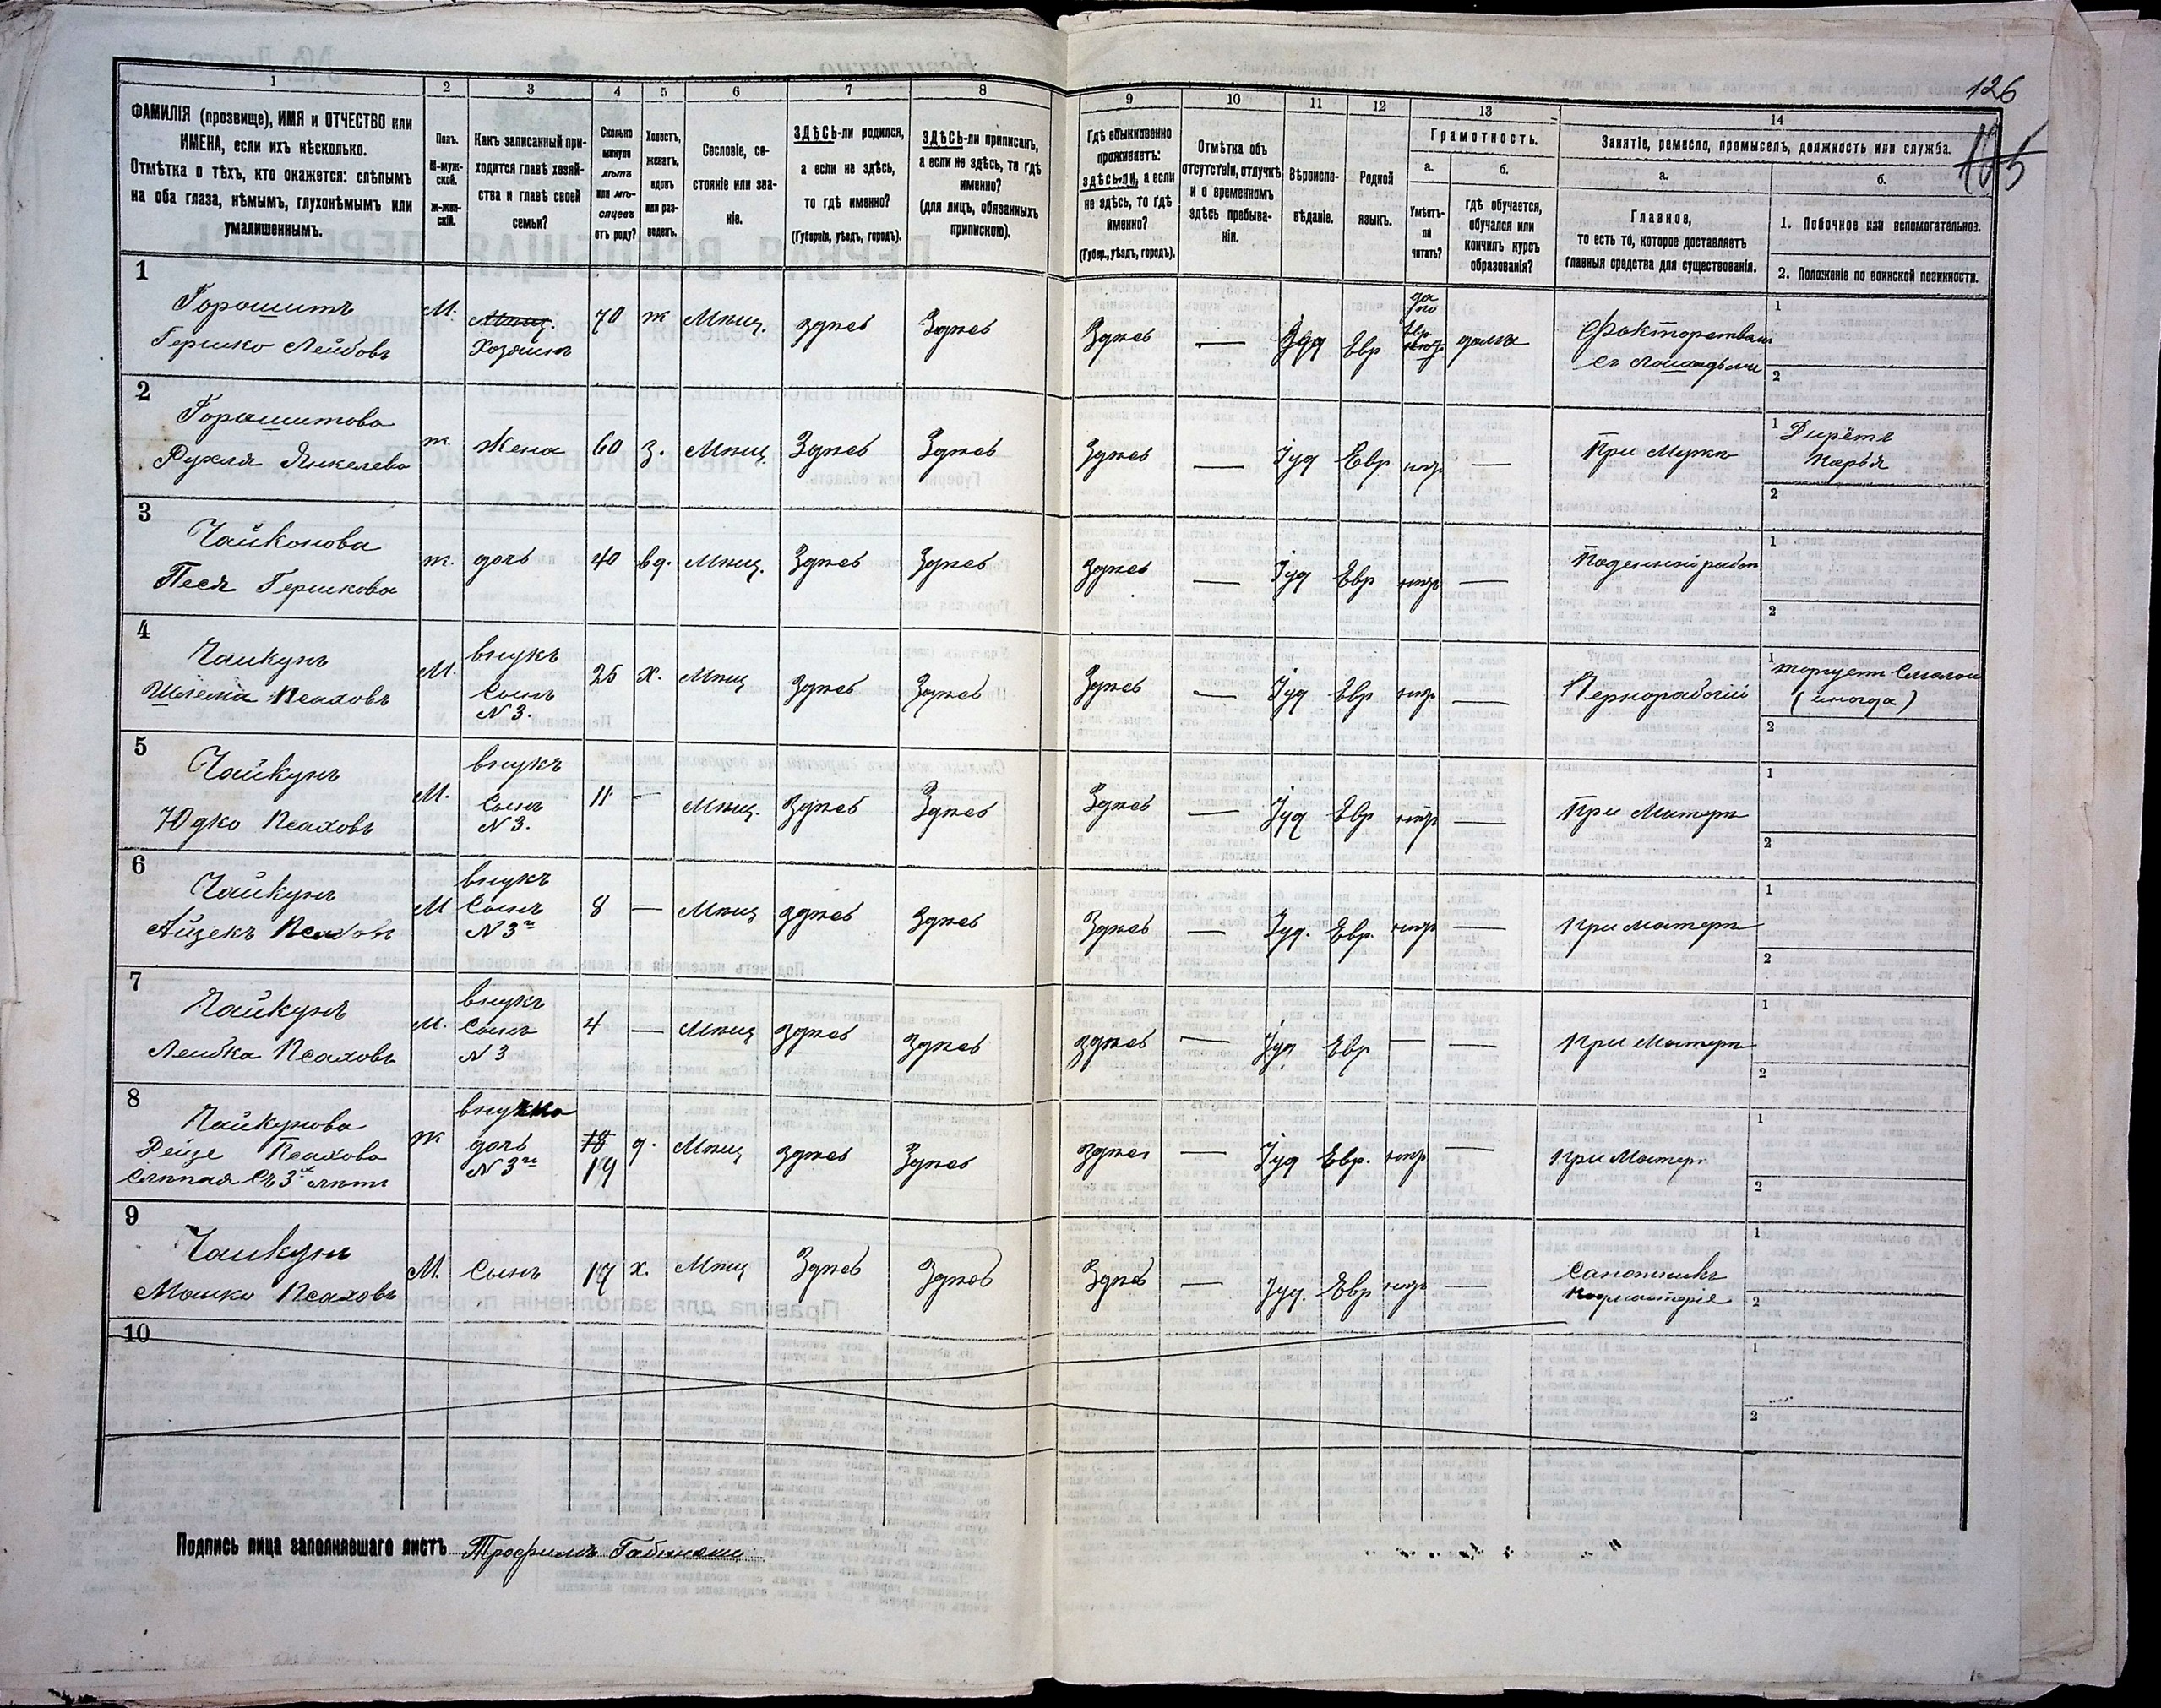 126
165
1 2 3 4 5 6 7 8 9 10 11 12 13 14
ФАМИЛІЯ (прозвище), ИМЯ и ОТЧЕСТВО или
ИМЕНА, если ихъ нѣсколько.
Отмѣтка о тѣхъ, кто окажется: слѣпымъ
на оба глаза, нѣмымъ, глухонѣмымъ или
умалишеннымъ.
Полъ.
М-муж-
ской.
ж-жен-
скій.
Какъ записанный при-
ходится главѣ хозяй-
ства и главѣ своей
семьи?
Сколько
минуло
лѣтъ
или мѣ-
сяцевъ
отъ роду?
Холостъ,
женатъ,
вдовъ
или раз-
веденъ.
Сословіе, со-
стояніе или зва-
ніе.
ЗДѢСЬ-ли родился,
а если не здѣсь,
то гдѣ именно?
(Губернія, уѣздъ, городъ).
ЗДѢСЬ-ли приписанъ,
а если не здѣсь, то гдѣ
именно?
(для лицъ, обязанныхъ
припискою).
Гдѣ обыкновенно
проживаетъ:
здѣсь-ли, а если
не здѣсь, то гдѣ
именно?
(Губер., уѣздъ, городъ).
Отмѣтка объ
отсутствіи, отлучкѣ
и о временномъ
здѣсь пребыва-
ніи.
Вѣроиспо-
вѣданіе.
Родной
языкъ.
Грамотность.
а.
Умѣетъ-
ли
читать?
б.
гдѣ обучается,
обучался или
кончилъ курсъ
образованія?
Занятіе, ремесло, промыселъ, должность или служба.
а.
Главное,
то есть то, которое доставляетъ
главныя средства для существованія.
б.
1. Побочное или вспомогательное.
2. Положеніе по воинской повинности.
1
Горошитъ
Гершко Лейбовъ
М.
Мѣщ.
Хозяинъ
70 ж Мѣщ. здѣсь Здѣсь Здѣсь — Іуд Евр
да
дома
Факторствомъ
съ лошадьми
1
2
2
Горошитова
Рухля Янкелева
ж. Жена 60 з. Мѣщ. Здѣсь Здѣсь Здѣсь — Іуд Евр нѣтъ — При Мужѣ
1
2
3
Чайконова
Песя Гершкова
ж. дочь 40 вд. Мѣщ. Здѣсь Здѣсь Здѣсь — Іуд Евр нѣтъ — Поденной работ
1
2
4
Чайкунъ
Шлема Псаховъ
М.
внукъ
Сынъ
N 3.
25 х. Мѣщ Здѣсь Здѣсь Здѣсь — Іуд Евр нѣтъ — Чернорабочій
1 торгуетъ Смолой
(иногда)
2
5
Чайкунъ
Юдко Псаховъ
М.
внукъ
Сынъ
N 3.
11 — Мѣщ. Здѣсь Здѣсь Здѣсь — Іуд Евр нѣтъ — При Матери
1
2
6
Чайкунъ
Айзекъ Псаховъ
М
внукъ
Сынъ
N 3го
8 — Мѣщ здѣсь Здѣсь Здѣсь — Іуд. Евр. нѣтъ — При матери
1
2
7
Чайкунъ
Лейбка Псаховъ
М.
внукъ
Сынъ
N 3
4 — Мѣщ здѣсь Здѣсь здѣсь — Іуд Евр — — При Матери
1
2
8
Чайкунова
Рейзе Псахова
Слѣпая Съ 3хъ лѣтъ
ж
внучка
дочь
N 3го
18
19
д. Мѣщ здѣсь Здѣсь здѣсь — Іуд Евр. нѣтъ — При Матери
1
2
9
Чайкунъ
Мошко Псаховъ
М. Сынъ 17 х. Мѣщ Здѣсь Здѣсь Здѣсь — Іуд. Евр нѣтъ —
Сапожникъ
1
2
10
1
2
Подпись лица заполнявшаго листъ Трофимъ